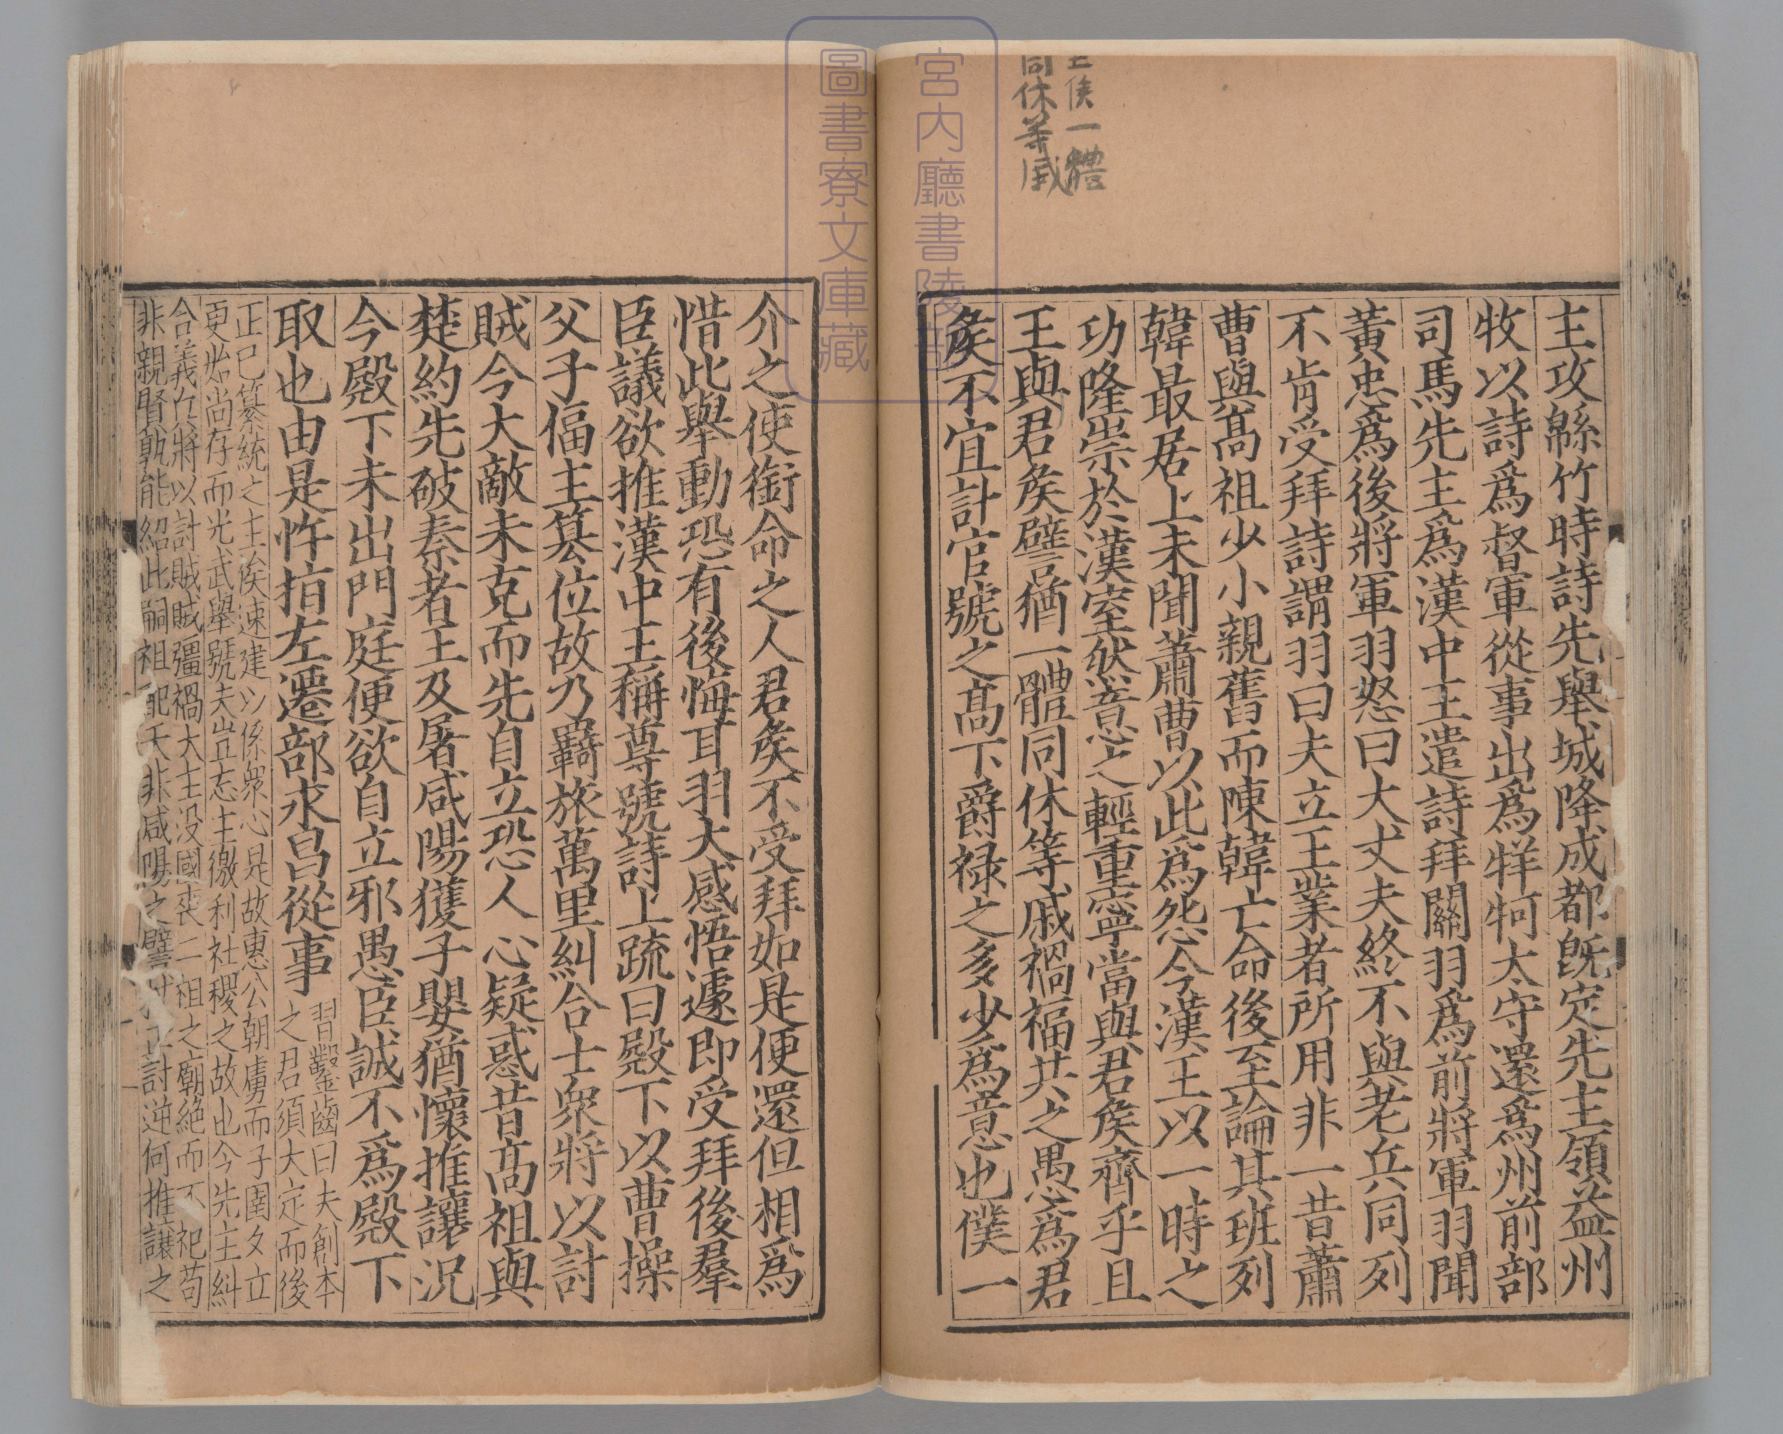 王侯一體
同休等戚
主攻緜竹時詩先舉城降成都既定先主領益州
牧以詩爲督軍從事出爲牂牁太守還爲州前部
司馬先主爲漢中王遣詩拜關羽爲前將軍羽聞
黃忠爲後將軍羽怒曰大丈夫終不與老兵同列
不肯受拜詩謂羽曰夫立王業者所用非一昔蕭
曹與高祖少小親舊而陳韓亡命後至論其班列
韓最居上未聞蕭曹以此爲怨今漢王以一時之
功隆崇於漢室然意之輕重寧當與君矦齊乎且
王與君矦譬猶一體同休等戚禍福共之愚爲君
矦不宜計官號之高下爵祿之多少爲意也僕一
宮内廳書陵部
圖書寮文庫藏
介之使銜命之人君矦不受拜如是便還但相爲
惜此舉動恐有後悔耳羽大感悟遽即受拜後羣
臣議欲推漢中王稱尊號詩上疏曰殿下以曹操
父子偪主篡位故乃羈旅萬里糾合士衆將以討
賊今大敵未克而先自立恐人心疑惑昔高祖與
楚約先破秦者王及屠咸陽獲子嬰猶懷推讓況
今殿下未出門庭便欲自立邪愚臣誠不爲殿下
取也由是忤指左遷部永昌從事
習鑿齒曰夫創本
之君須大定而後
正已纂統之主俟速建以係衆心是故惠公朝虜而子圉夕立
更始尚存而光武舉號夫豈忘主徼利社稷之故也今先主糾
合義兵將以討賊賊彊禍大主没國喪二祖之廟絶而不祀苟
非親賢孰能紹此嗣祖配天非咸陽之譬正討逆何推讓之